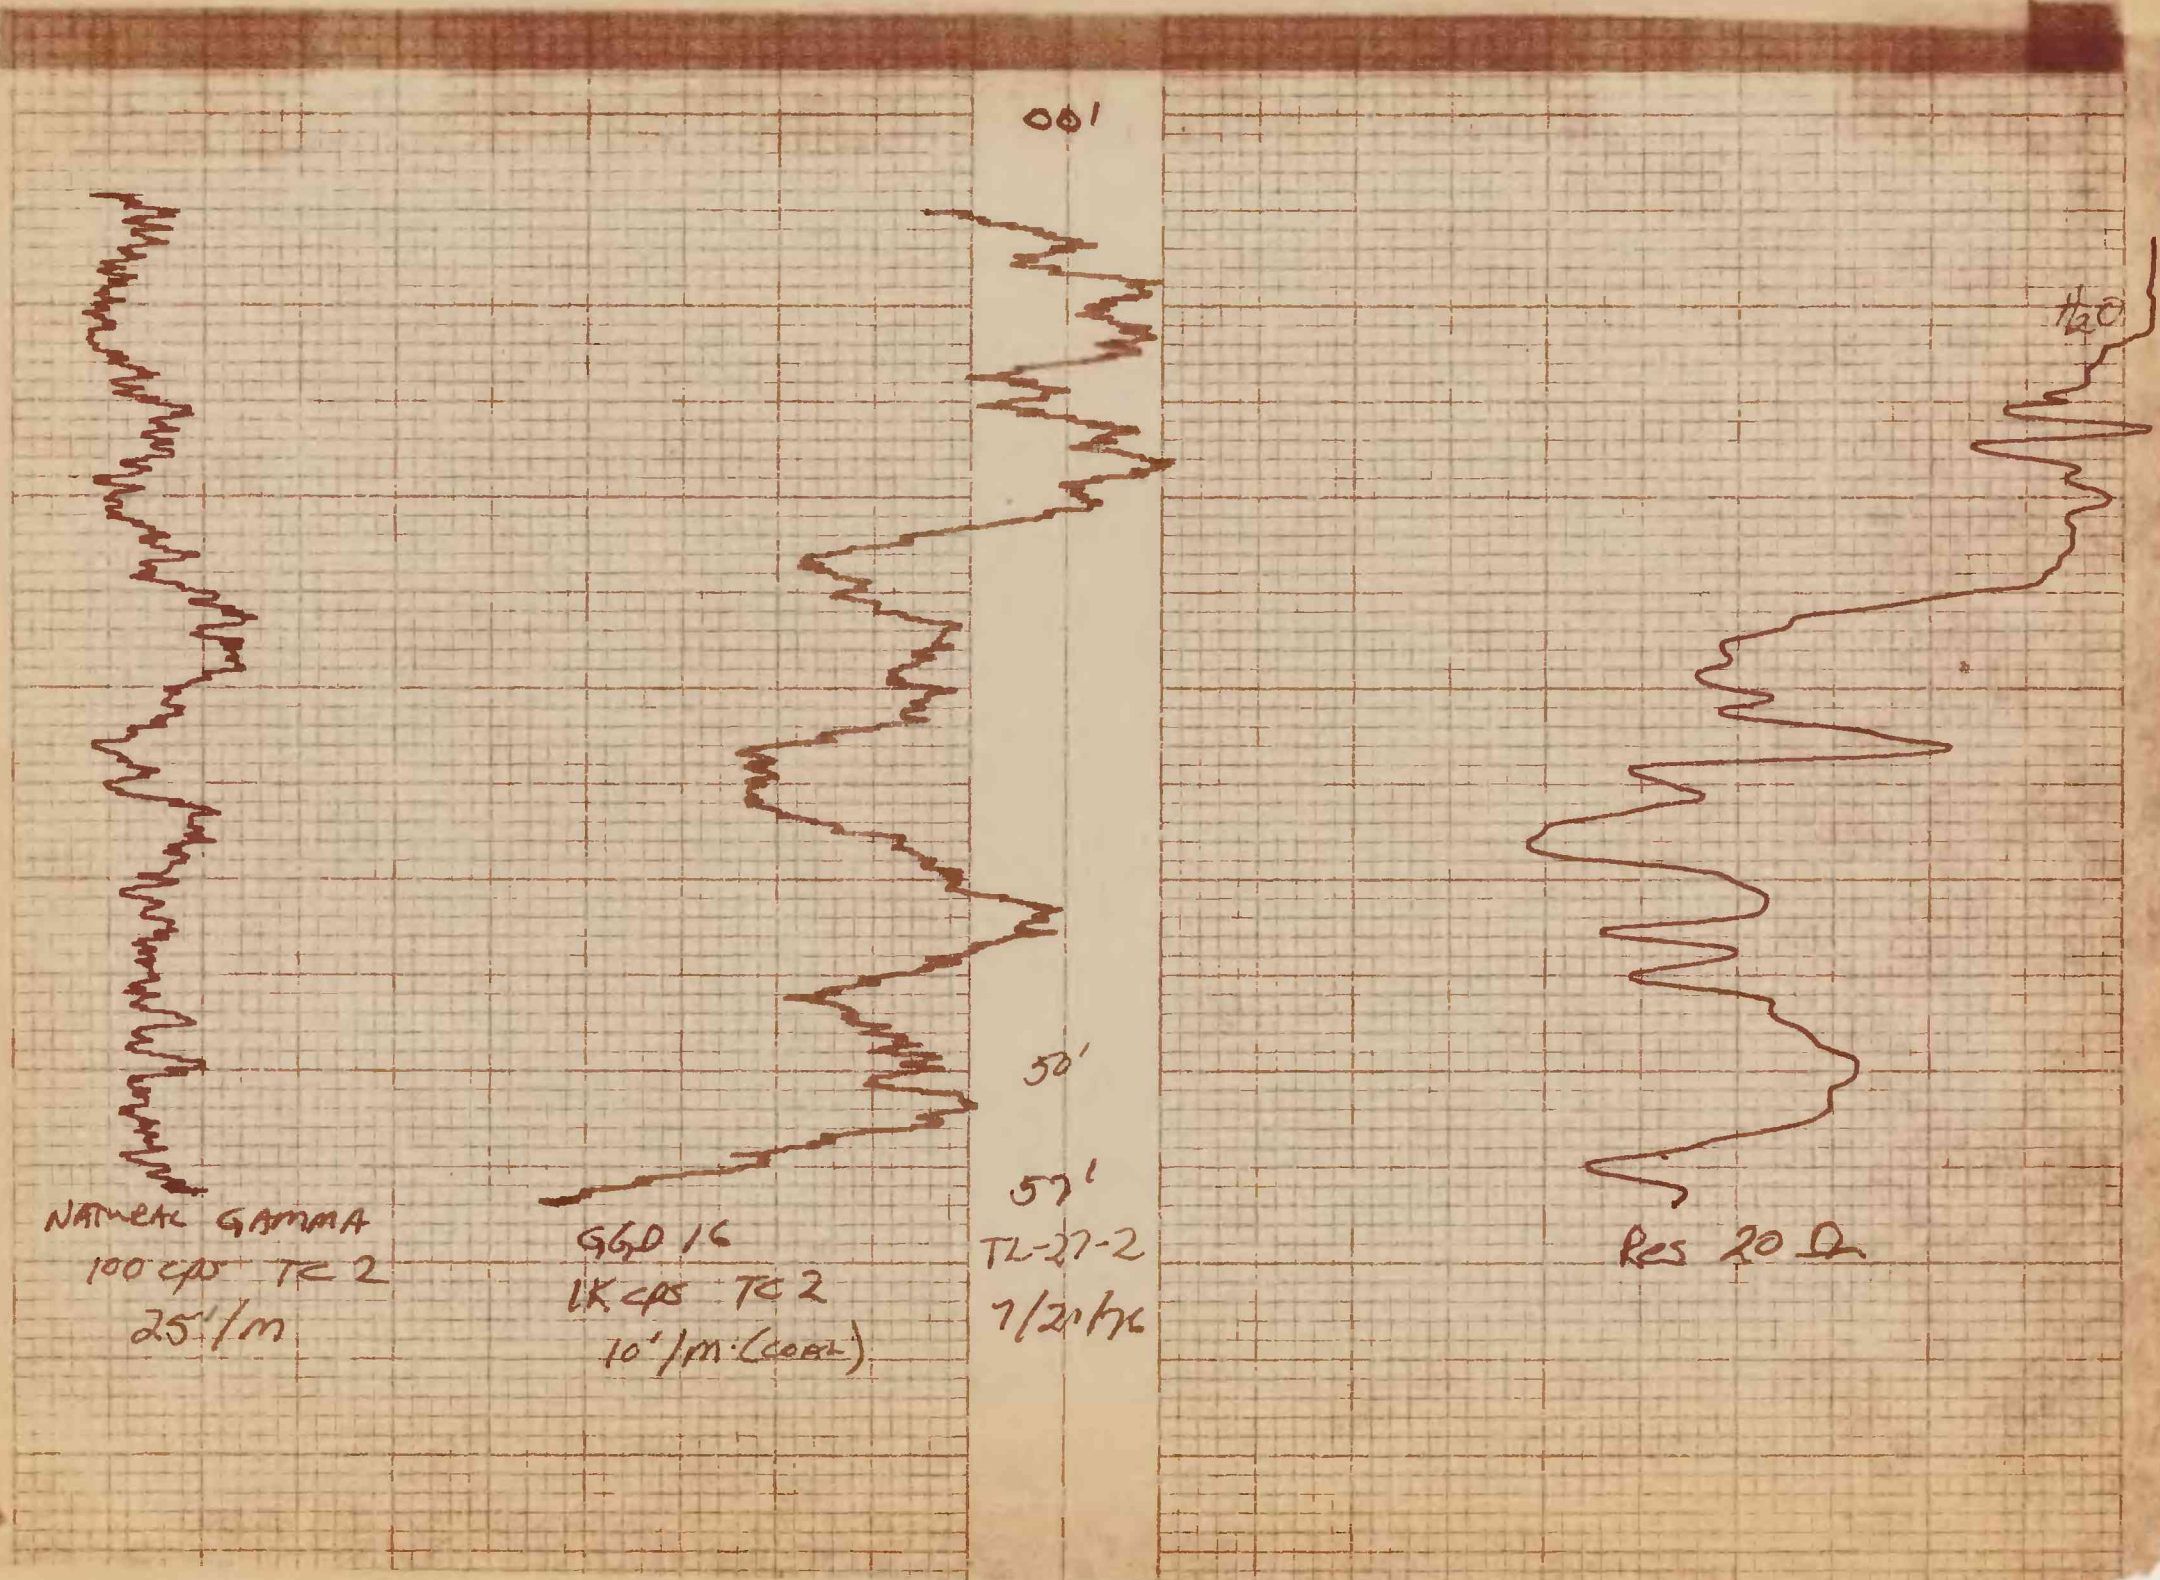 00'
H2O
50'
57'
NATURAL GAMMA
100 cps TC 2
25'/m
GGD 16
1K cps TC 2
10'/m (COAL)
TL-27-2
7/21/76
Res 20 Ω